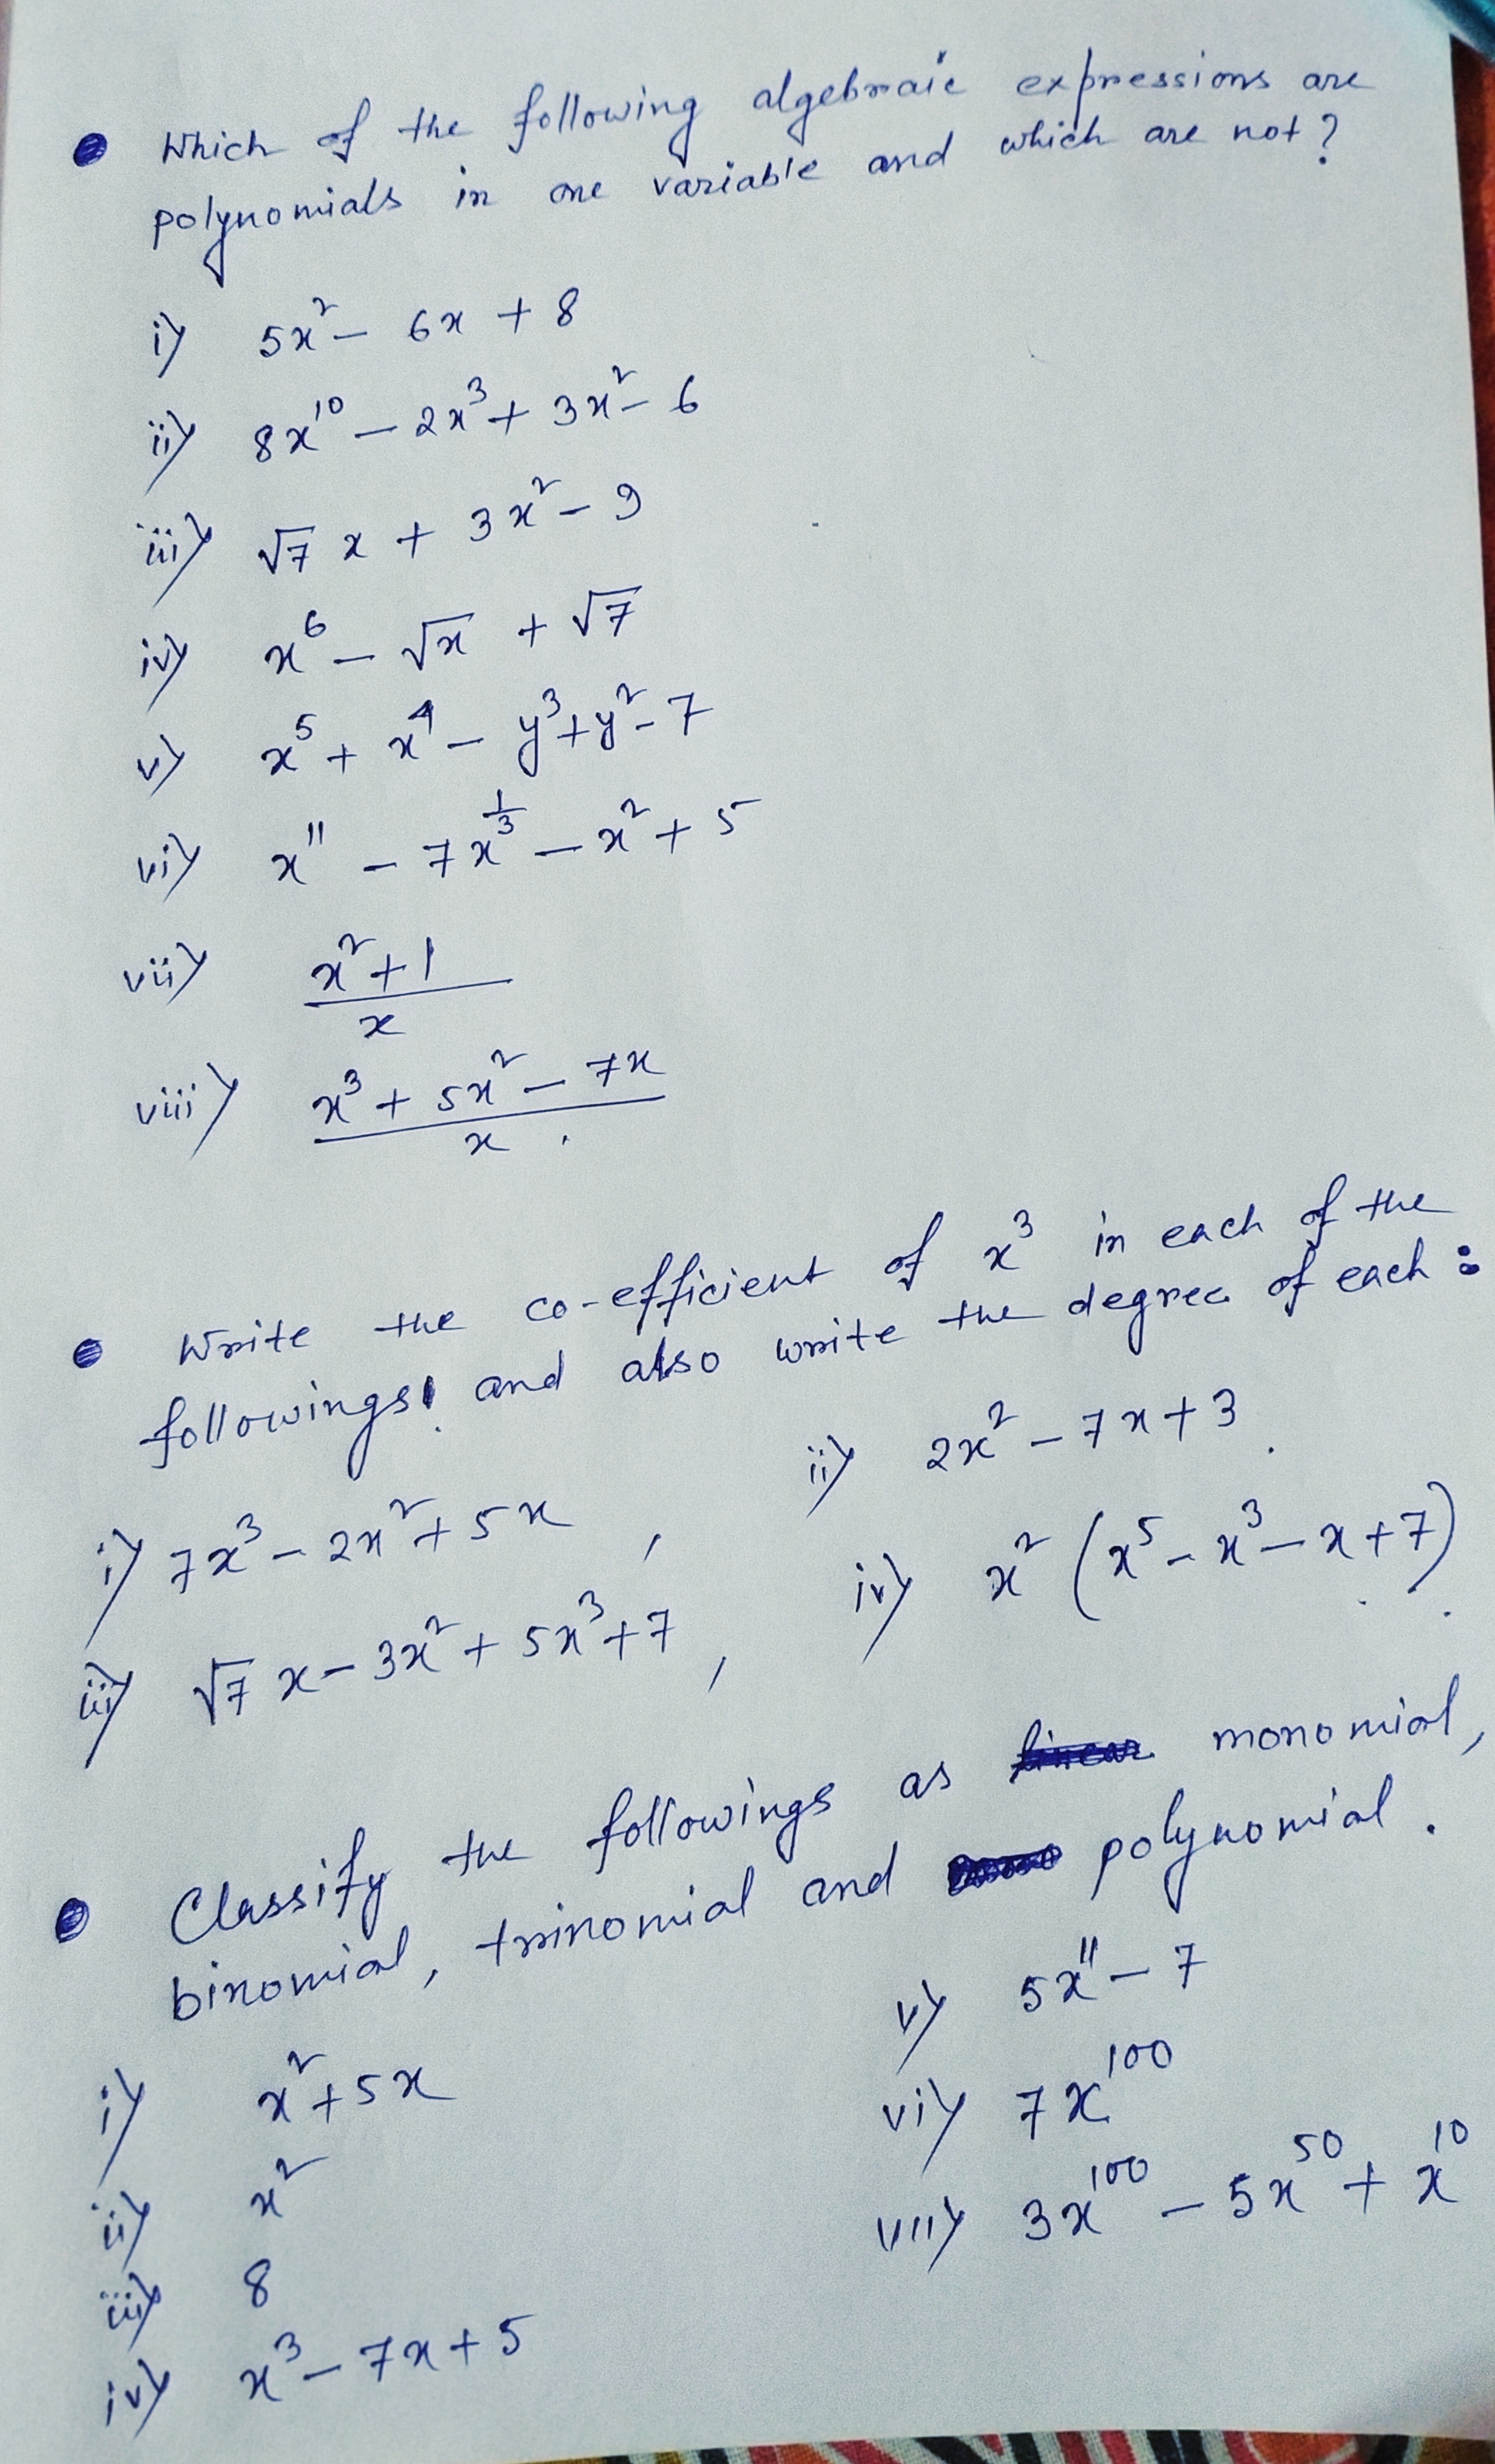 Which of the following algebraic expressions are
polynomials in one variable and which are not?
i) 5x² - 6x + 8
ii) 8x¹⁰ - 2x³ + 3x² - 6
iii) √7 x + 3x² - 9
iv) x⁶ - √x + √7
v) x⁵ + x⁴ - y³ + y² - 7
vi) x¹¹ - 7x^(1/3) - x² + 5
vii) (x² + 1)/x
viii) (x³ + 5x² - 7x)/x
Write the co-efficient of x³ in each of the
followings, and also write the degree of each:
i) 7x³ - 2x² + 5x , ii) 2x² - 7x + 3.
iii) √7 x - 3x² + 5x³ + 7 , iv) x² (x⁵ - x³ - x + 7).
Classify the followings as monomial,
binomial, trinomial and polynomial.
i) x² + 5x
ii) x²
iii) 8
iv) x³ - 7x + 5
v) 5x¹¹ - 7
vi) 7x¹⁰⁰
vii) 3x¹⁰⁰ - 5x⁵⁰ + x¹⁰